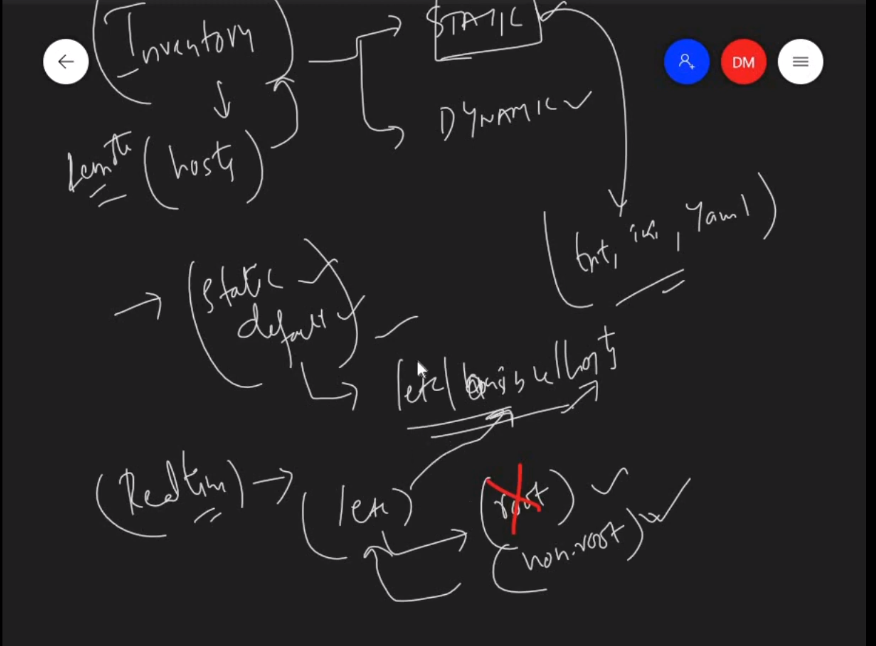 Inventory
STATIC
DM
DYNAMIC
(hosts)
(txt, ini, Yaml)
(static
default)
/etc/ansible/hosts
(Realtime)
(/etc)
(root)
(non-root)